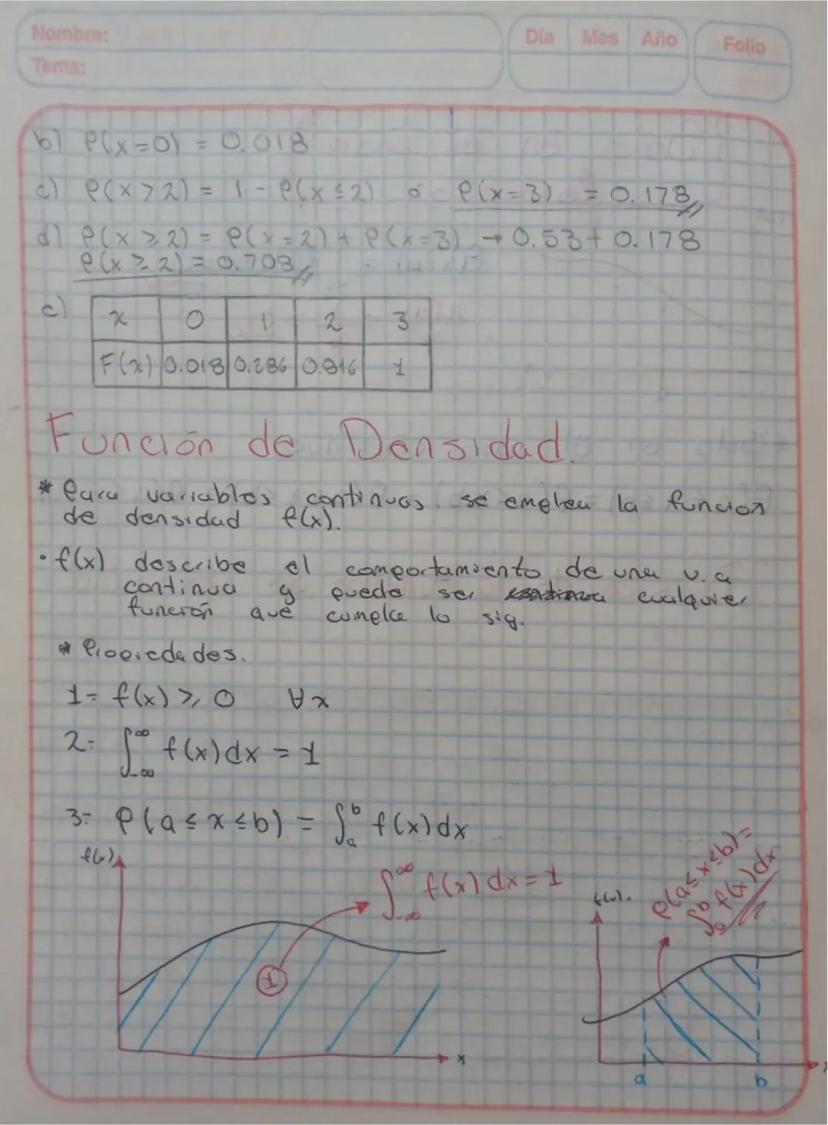 Nombre:
Día Mes Año
Folio
Tema:
b) P(x=0) = 0.018
c) P(x>2) = 1 - P(x≤2) ó P(x=3) = 0.178
d) P(x≥2) = P(x=2) + P(x=3) → 0.53 + 0.178
P(x≥2) = 0.708
e)
x 0 1 2 3
F(x) 0.018 0.286 0.816 1
Función de Densidad.
* Para variables continuas se emplea la función
de densidad f(x).
• f(x) describe el comportamiento de una v.a
continua y puede ser cualquier
función que cumpla lo sig.
* Propiedades.
1- f(x) ≥ 0 ∀x
2- ∫_{-∞}^{∞} f(x)dx = 1
3- P(a≤x≤b) = ∫_a^b f(x)dx
f(x)
∫_{-∞}^{∞} f(x)dx = 1
1
x
f(x).
P(a≤x≤b) =
∫_a^b f(x)dx
a b